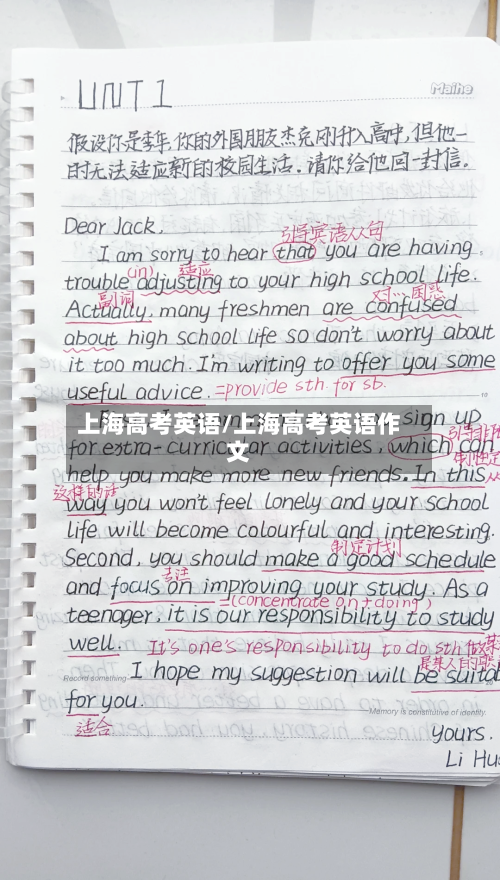 UNIT 1
Maihe
假设你是李华,你的外国朋友杰克刚升入高中,但他一
时无法适应新的校园生活。请你给他回一封信。
Dear Jack,
引导宾语从句
I am sorry to hear that you are having
(in) 适应
trouble adjusting to your high school life.
副词 对…困惑
Actually, many freshmen are confused
about high school life so don't worry about
it too much. I'm writing to offer you some
useful advice. =provide sth. for sb.
sign up
上海高考英语/上海高考英语作
文
for extra-curricular activities, which can
help you make more new friends. In this
这样的话
way you won't feel lonely and your school
life will become colourful and interesting.
制定计划
Second, you should make a good schedule
专注
and focus on improving your study. As a
=(concentrate on + doing)
teenager, it is our responsibility to study
well. It's one's responsibility to do sth
Record something
I hope my suggestion will be suitab
for you.
适合
Memory is constitutive of identity.
Yours.
Li Hu